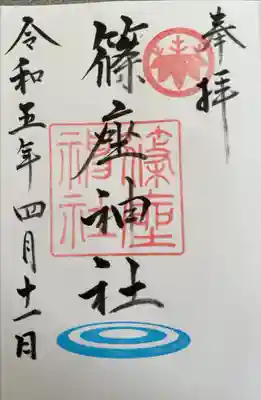 奉拝
篠座神社
篠座
神社
令和五年四月十一日